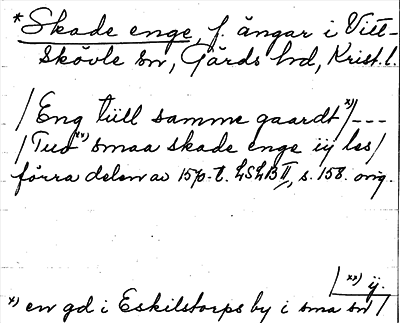 *Skade enge, f. ängar i Vitt-
Skövle sn, Gärds hd, Krist. l.
/Eng tiill samme gaardt *)/---
/Tuo **) smaa skade enge iij les/
förra delen av 15/0-t. LSLB II, s. 158. orig.
**) ij.
*) en gd i Eskilstorps by i sma sn/